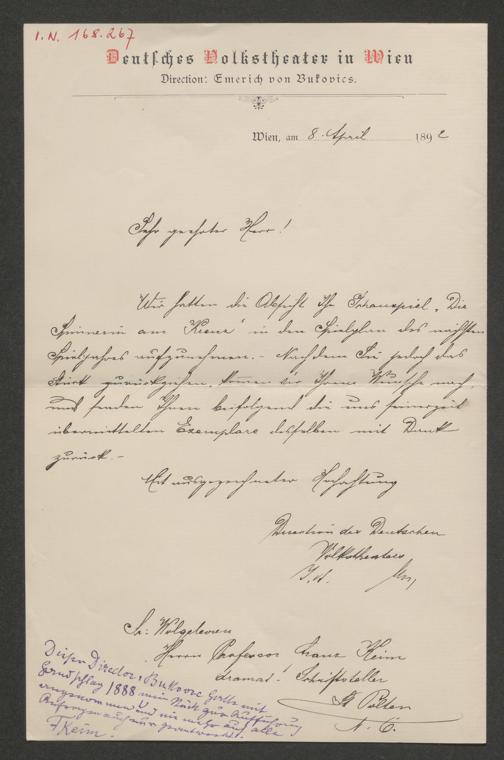 I.N. 168.267
Deutsches Volkstheater in Wien
Direction: Emerich von Bukovics.
Wien, am 8. April 1892
Sehr geehrter Herr!
Wir hatten die Absicht Ihr Schauspiel „Die
Spinnerin am Kreuz" in den Spielplan des nächsten
Spieljahres aufzunehmen. – Nachdem Sie jedoch das
Stück zurückziehen, kommen wir Ihrem Wunsche nach,
und senden Ihnen beifolgend die uns seinerzeit
übermittelten Exemplare desselben mit Dank
zurück. –
Mit ausgezeichneter Hochachtung
Direction des Deutschen
Volkstheaters
I.A.
Sr. Wolgeboren
Herrn Professor Franz Keim
dramat. Schriftsteller
St Pölten
N. Ö.
Dieser Director Bukovic hatte mit
Handschlag 1888 mein Stück zur Aufführung
angenommen und nie mehr auf alle
Anfragen auch nur geantwortet.
F Keim.